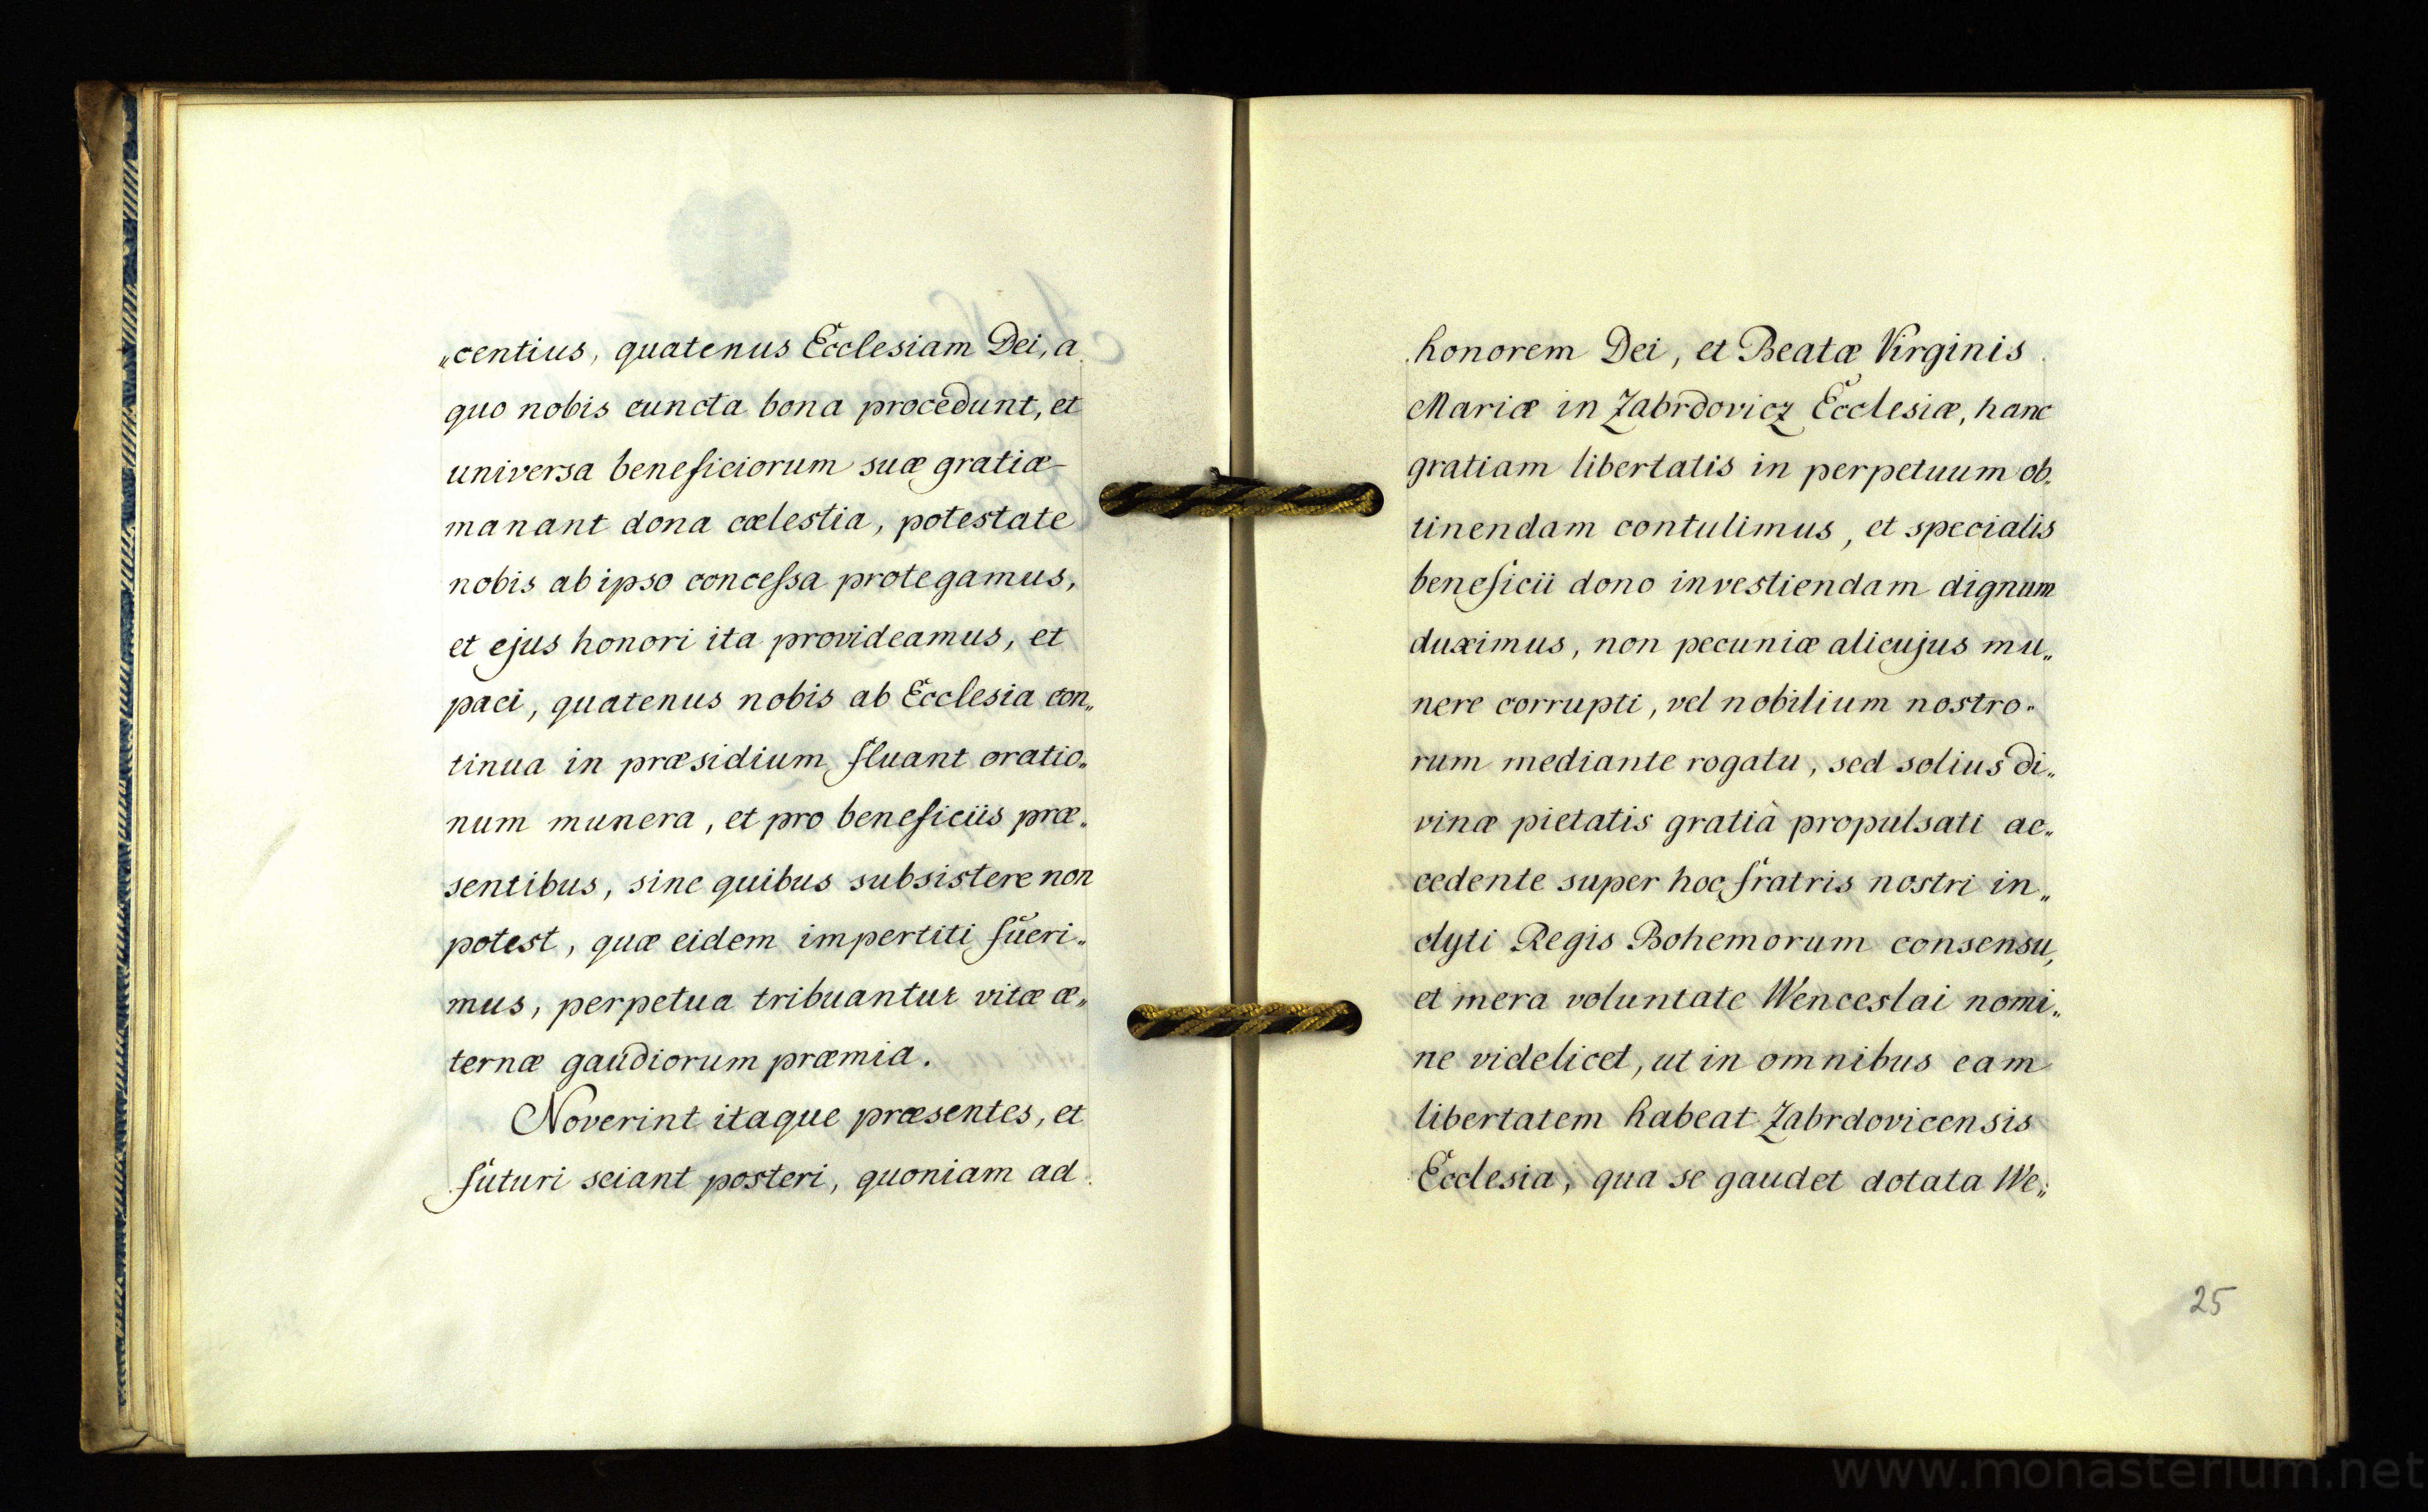 „centius, quatenus Ecclesiam Dei, a
quo nobis cuncta bona procedunt, et
universa beneficiorum suæ gratiæ
manant dona cœlestia, potestate
nobis ab ipso concessa protegamus,
et ejus honori ita provideamus, et
paci, quatenus nobis ab Ecclesia con„
tinua in præsidium fluant oratio„
num munera, et pro beneficiis præ„
sentibus, sine quibus subsistere non
potest, quæ eidem impertiti fueri„
mus, perpetua tribuantur vitæ æ„
ternæ gaudiorum præmia.
Noverint itaque præsentes, et
futuri sciant posteri, quoniam ad
honorem Dei, et Beatæ Virginis
Mariæ in Zabrdovicz Ecclesiæ, hanc
gratiam libertatis in perpetuum ob„
tinendam contulimus, et specialis
beneficii dono investiendam dignum
duximus, non pecuniæ alicujus mu„
nere corrupti, vel nobilium nostro„
rum mediante rogatu, sed solius di„
vinæ pietatis gratià propulsati ac„
cedente super hoc fratris nostri in„
clyti Regis Bohemorum consensu,
et mera voluntate Wenceslai nomi„
ne videlicet, ut in omnibus eam
libertatem habeat Zabrdovicensis
Ecclesia, qua se gaudet dotata We„
25
www.monasterium.net